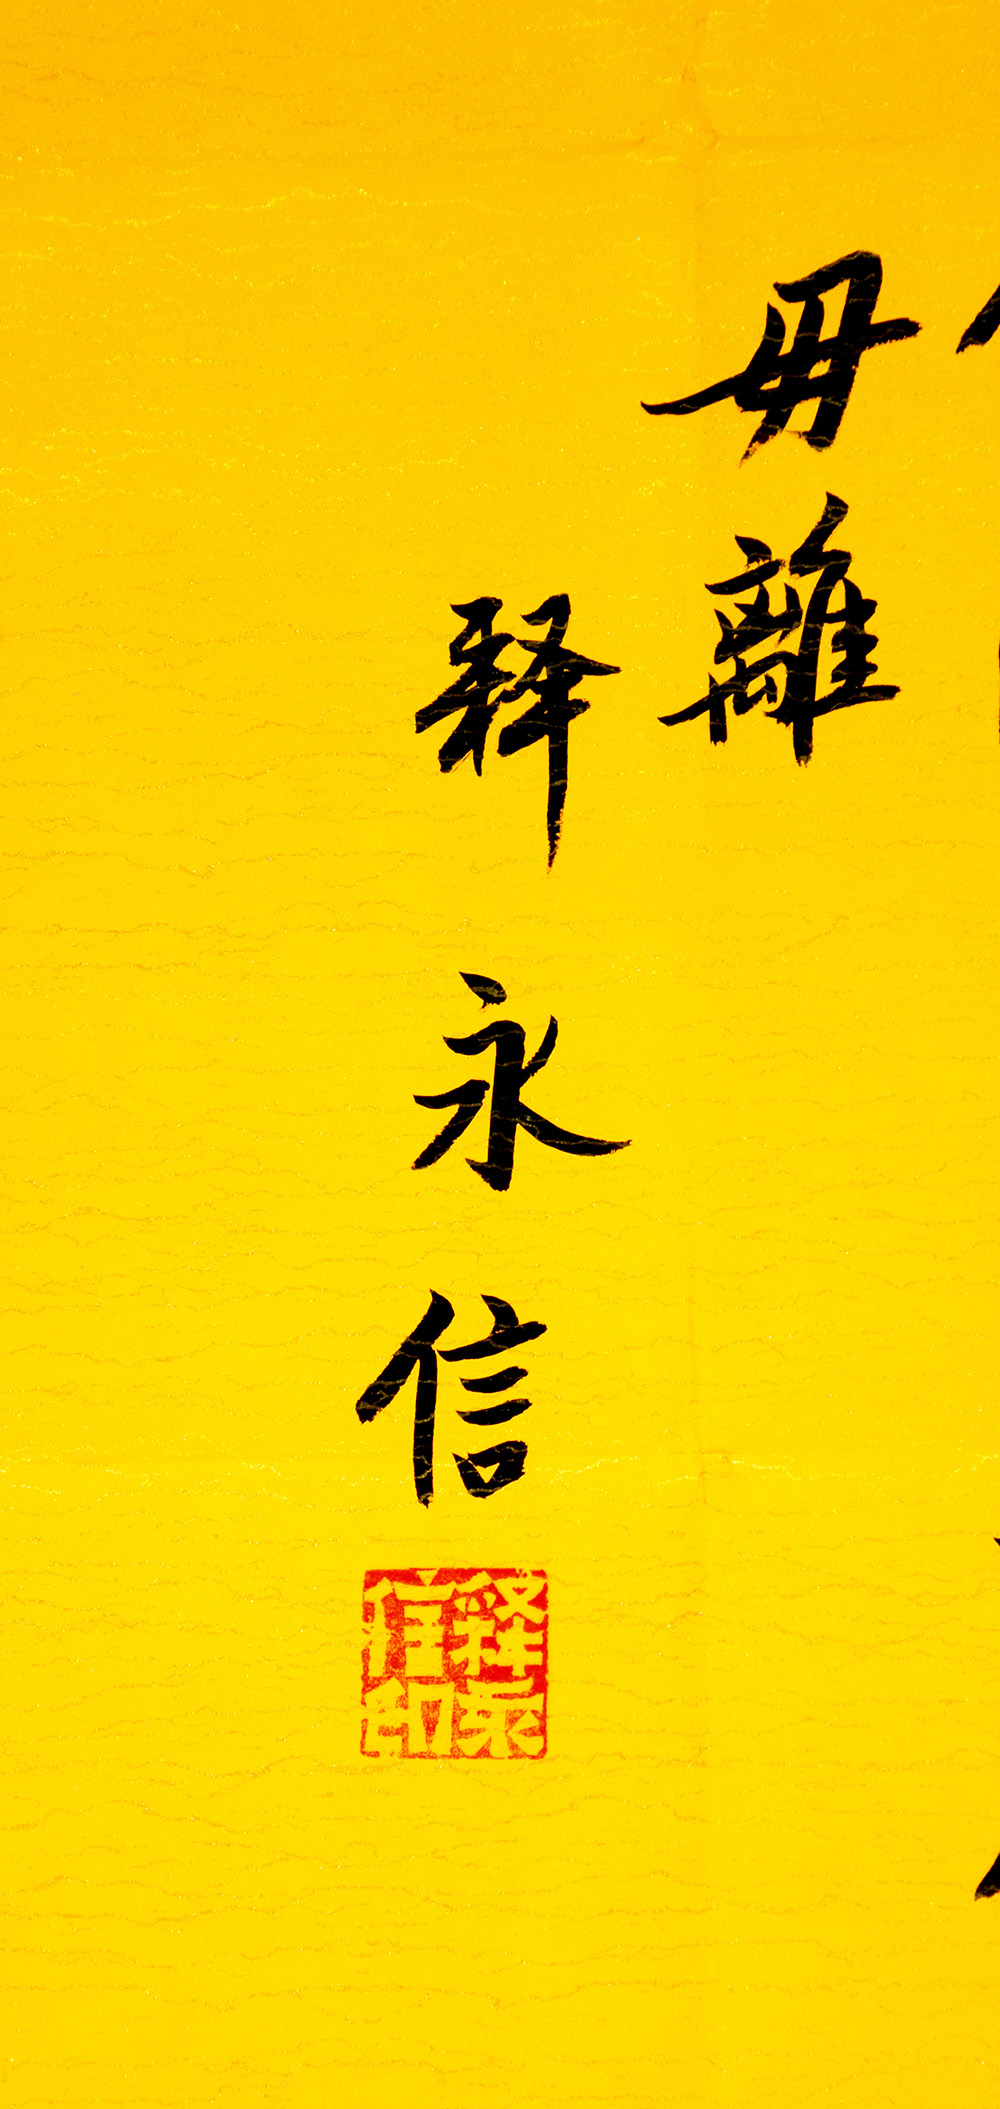 毋離
释永信
释永信印